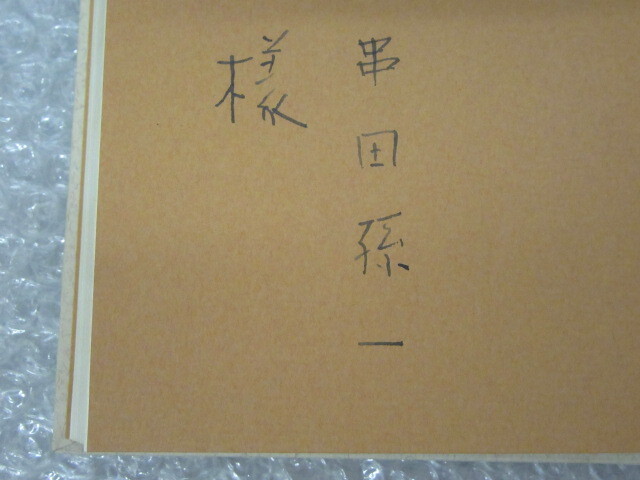 串田孫一
様